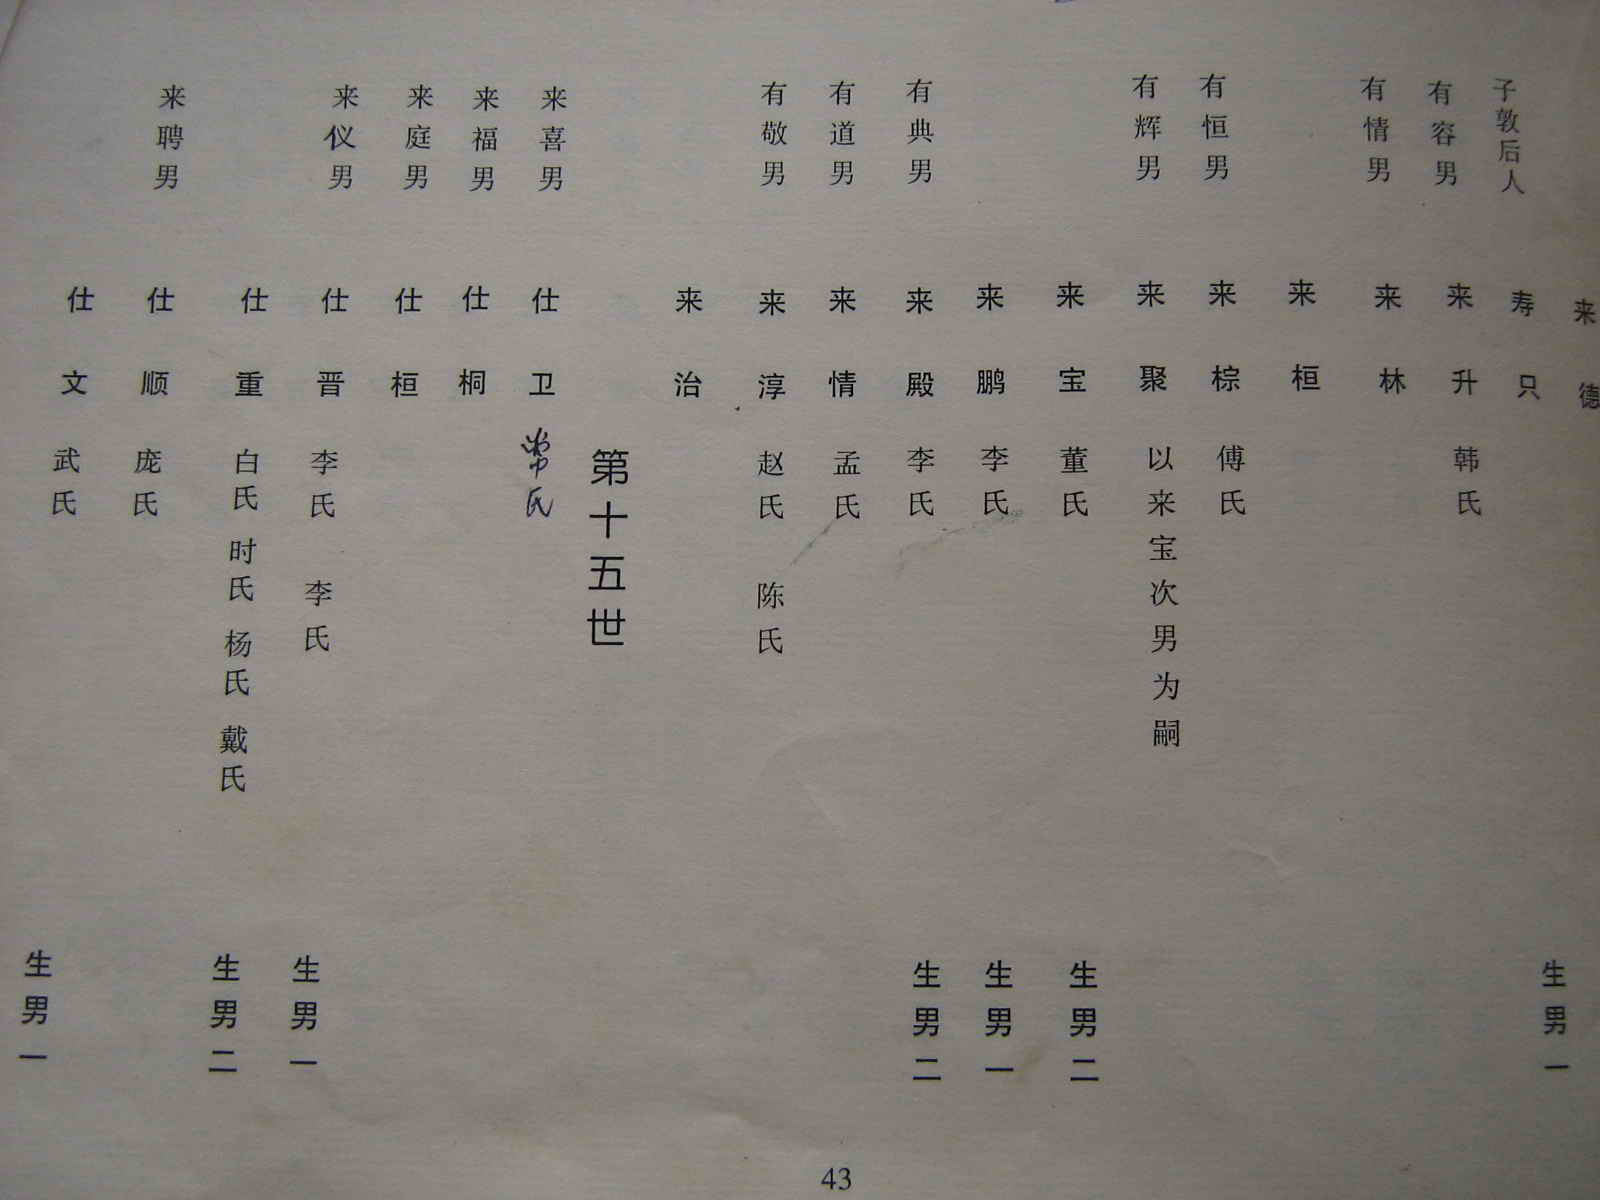 来德
子敦后人 寿只 生男一
有容男 来升 韩氏
有情男 来林
来桓
有恒男 来棕 傅氏
有辉男 来聚 以来宝次男为嗣
来宝 董氏 生男二
来鹏 李氏 生男一
有典男 来殿 李氏 生男二
有道男 来情 孟氏
有敬男 来淳 赵氏 陈氏
来治
第十五世
来喜男 仕卫 常氏
来福男 仕桐
来庭男 仕桓
来仪男 仕晋 李氏 李氏 生男一
仕重 白氏 时氏 杨氏 戴氏 生男二
来聘男 仕顺 庞氏
仕文 武氏 生男一
43